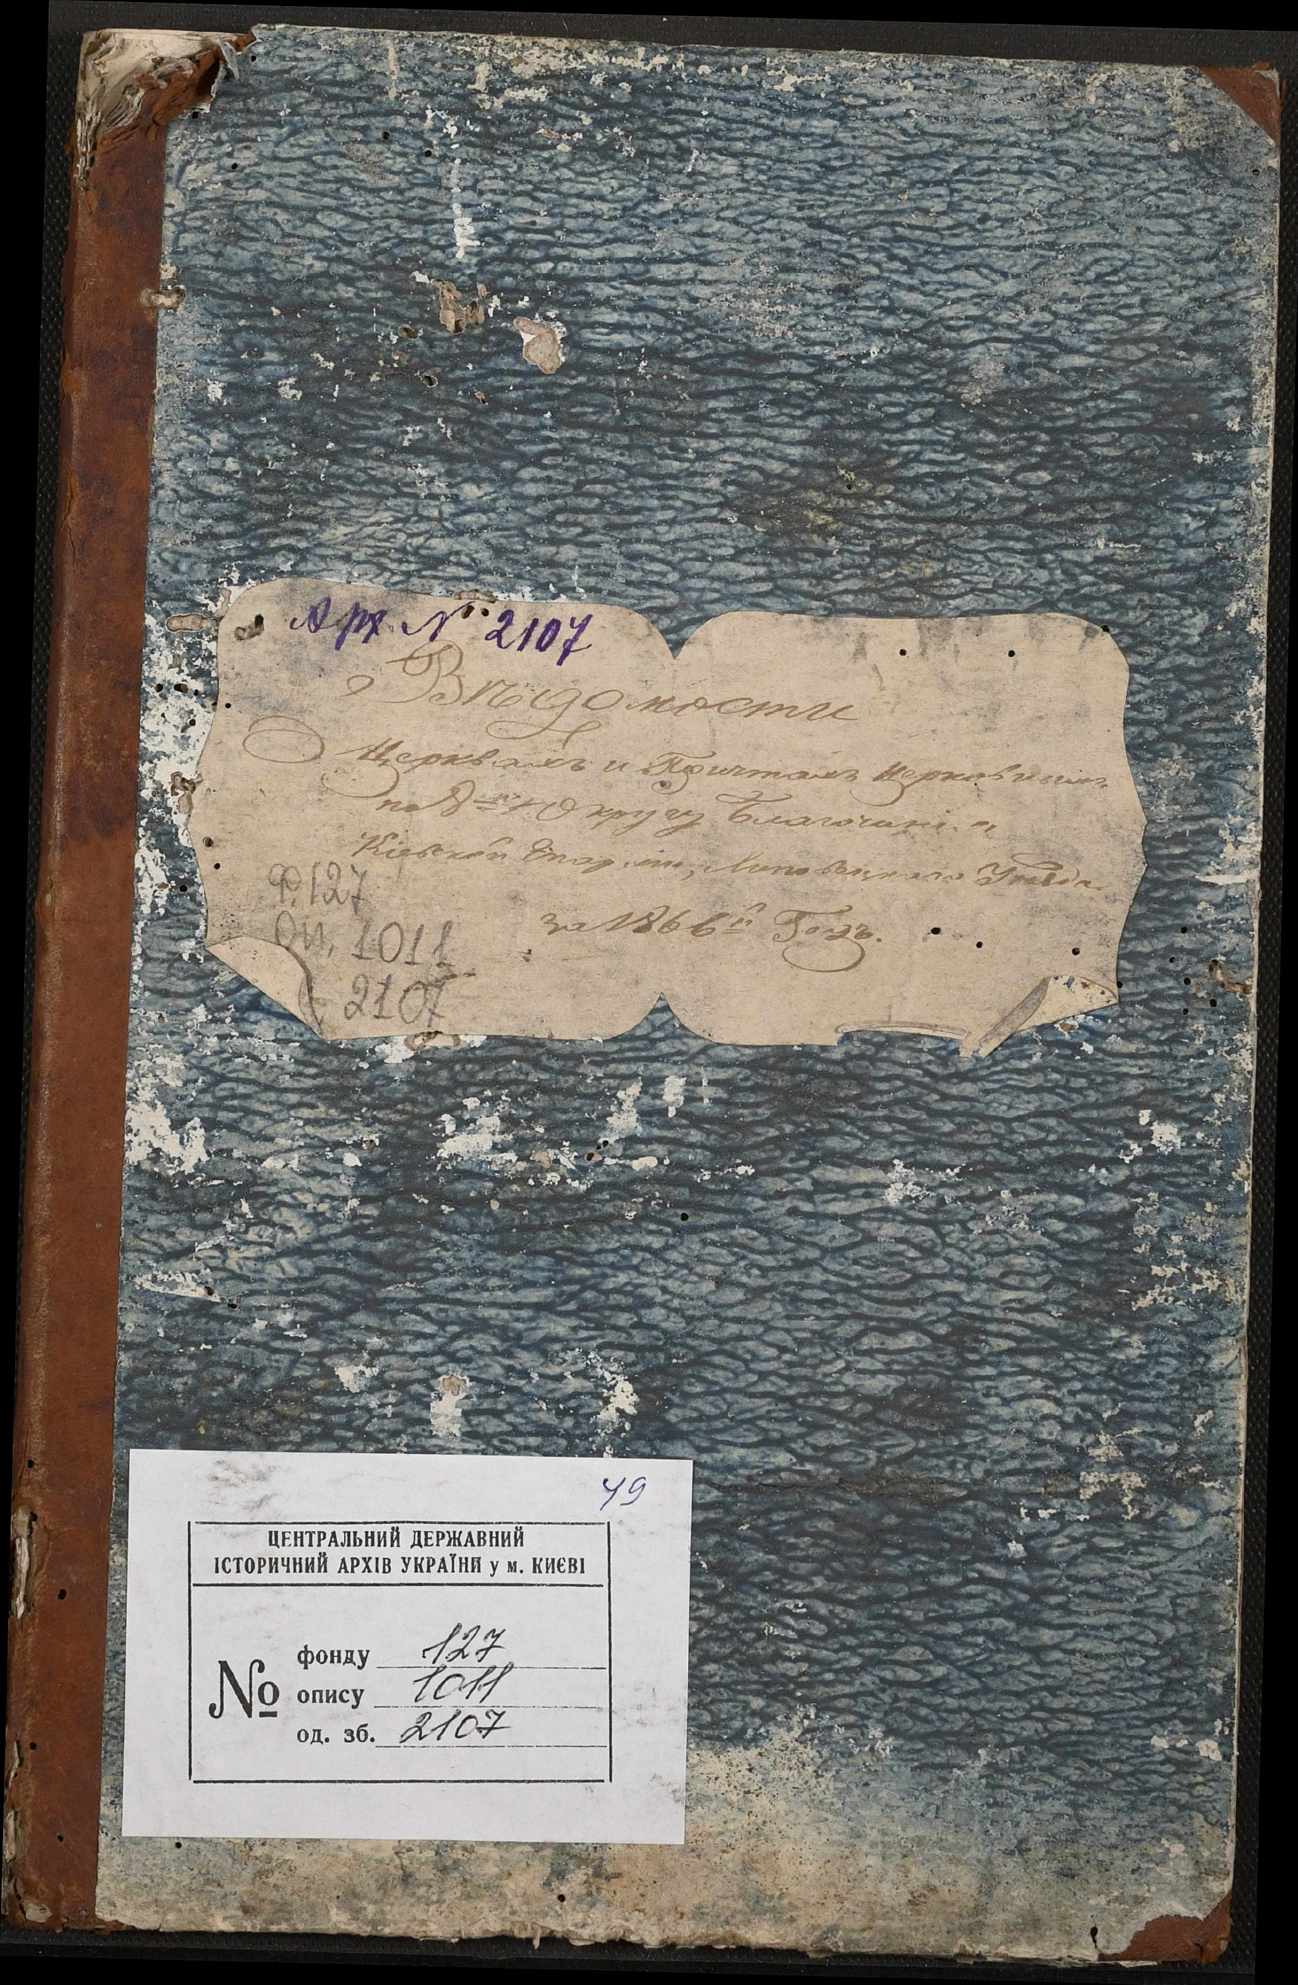 Арх. № 2107
Вѣдомости
Церквамъ и Причтамъ Церковнымъ
по 8му Округу Благочинія
Кіевской Епархіи, Липовецкого Уѣзда.
за 1866й Годъ.
Ф. 127
Оп. 1011
2107
49
ЦЕНТРАЛЬНИЙ ДЕРЖАВНИЙ
ІСТОРИЧНИЙ АРХІВ УКРАЇНИ у м. КИЄВІ
№ фонду 127
опису 1011
од. зб. 2107